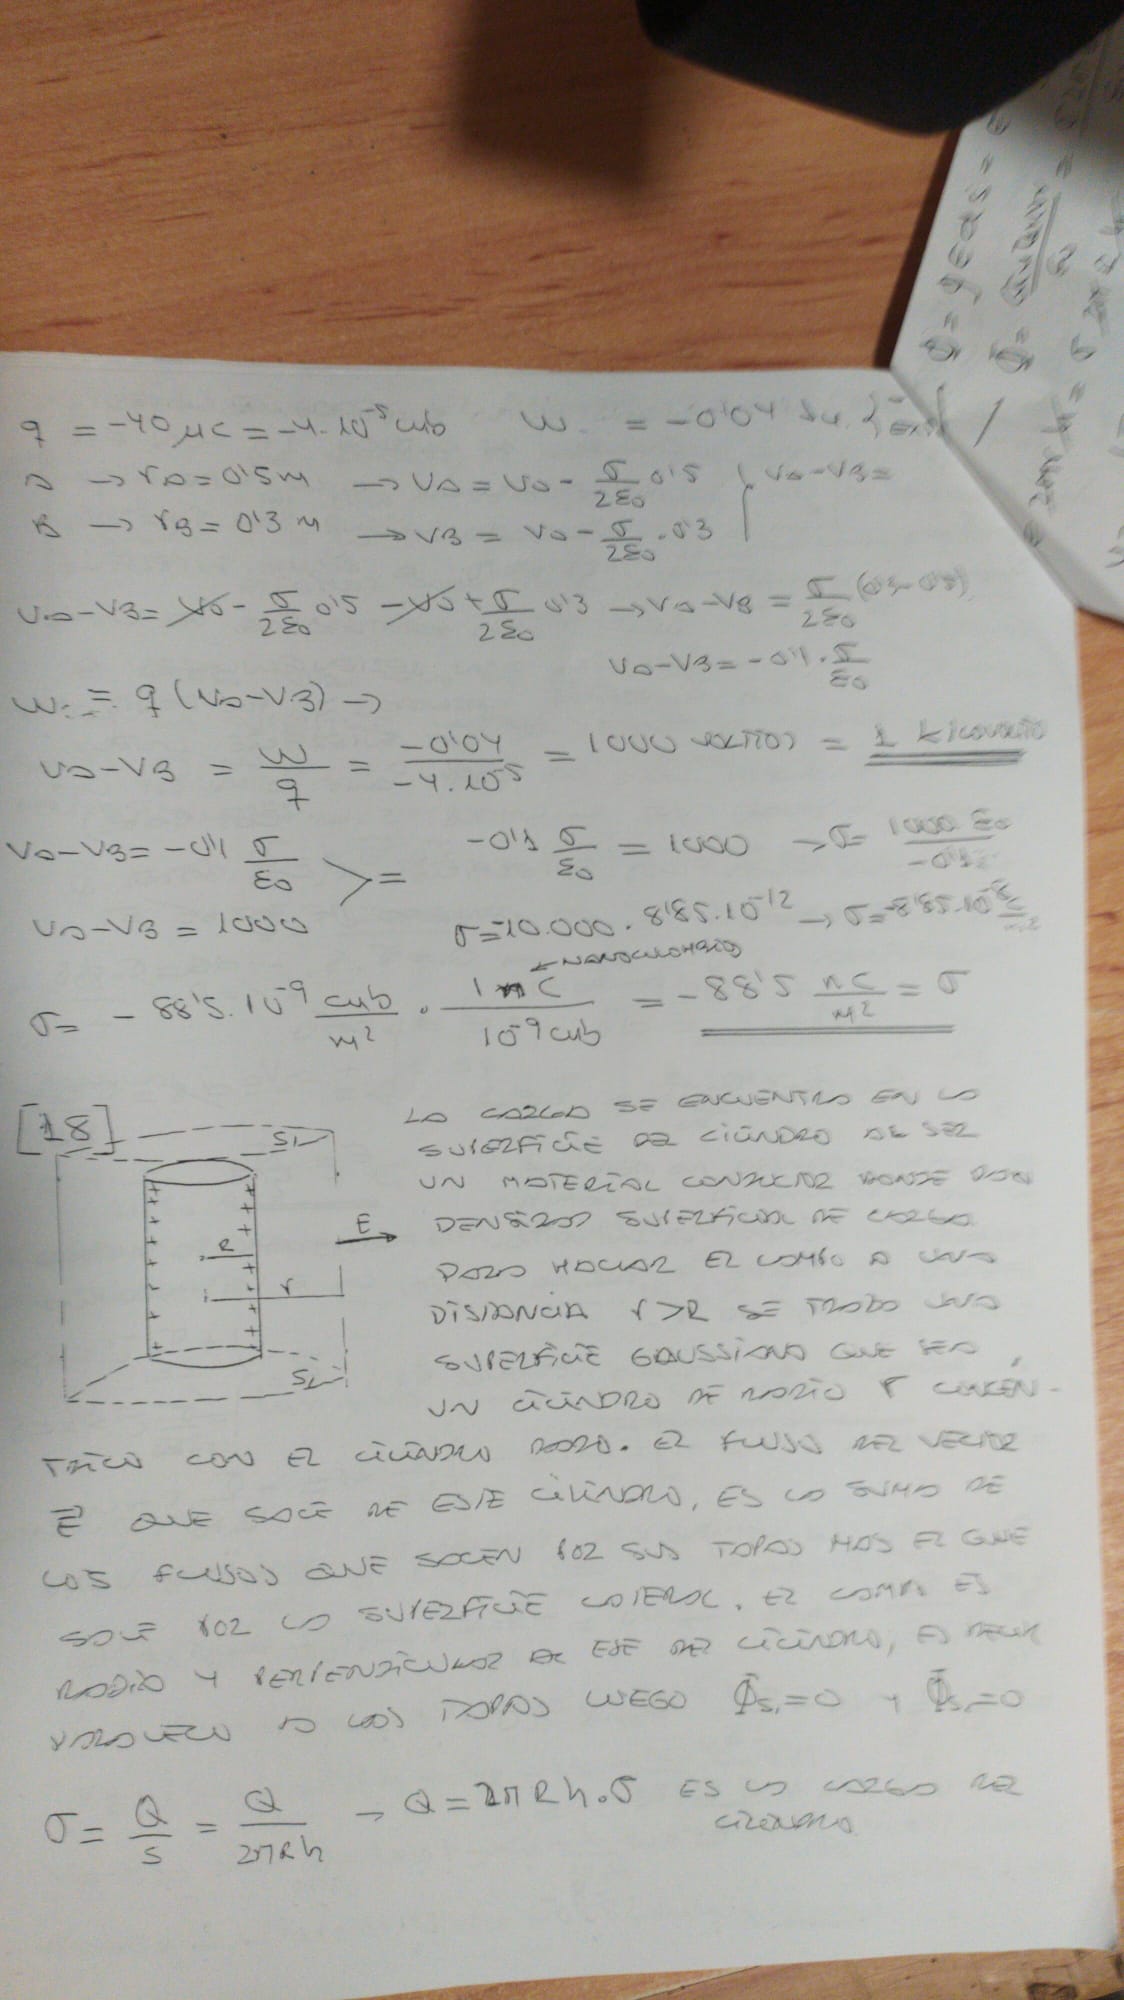 q = -40 μC = -4·10⁻⁵ culb   W = -0'04 Ju.
A → rA = 0'5 m → VA = V0 - σ/2ε0 0'5 } VA-VB =
B → rB = 0'3 m → VB = V0 - σ/2ε0 · 0'3
VA-VB = V0 - σ/2ε0 0'5 - V0 + σ/2ε0 0'3 → VA-VB = σ/2ε0 (0'3-0'5)
VA-VB = -0'1 · σ/ε0
W = q (VA-VB) →
VA-VB = W/q = -0'04/-4·10⁻⁵ = 1000 VOLTIOS = 1 kilovoltio
VA-VB = -0'1 σ/ε0 > =   -0'1 σ/ε0 = 1000 → σ = 1000 ε0/-0'1
VA-VB = 1000   σ = -10.000 · 8'85·10⁻¹² → σ = -8'85·10⁻⁸ C/m²
← NANOCULOMBIO
σ = -88'5·10⁻⁹ culb/m² · 1 nC/10⁻⁹ culb = -88'5 nC/m² = σ
[18]
S1
E
R
r
S2
LA CARGA SE ENCUENTRA EN LA
SUPERFICIE DEL CILINDRO AL SER
UN MATERIAL CONDUCTOR DONDE
DENSIDAD SUPERFICIAL DE CARGA
PARA HALLAR EL CAMPO A UNA
DISTANCIA r>R SE TRAZA UNA
SUPERFICIE GAUSSIANA QUE SEA
UN CILINDRO DE RADIO r CONCÉN-
TRICO CON EL CILINDRO DADO. EL FLUJO DEL VECTOR
E⃗ QUE SALE DE ESTE CILINDRO, ES LA SUMA DE
LOS FLUJOS QUE SALEN POR SUS TAPAS MAS EL QUE
SALE POR LA SUPERFICIE LATERAL. EL CAMPO ES
RADIAL Y PERPENDICULAR AL EJE DEL CILINDRO, ES DECIR
PARALELO A LAS TAPAS LUEGO Φs1=0 y Φs2=0
σ = Q/S = Q/2πRh → Q = 2πRh·σ ES LA CARGA DEL
CILINDRO